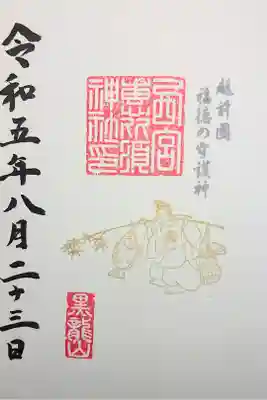 越前國
福徳の守護神
西宮
神社印
黒龍山
令和五年八月二十三日